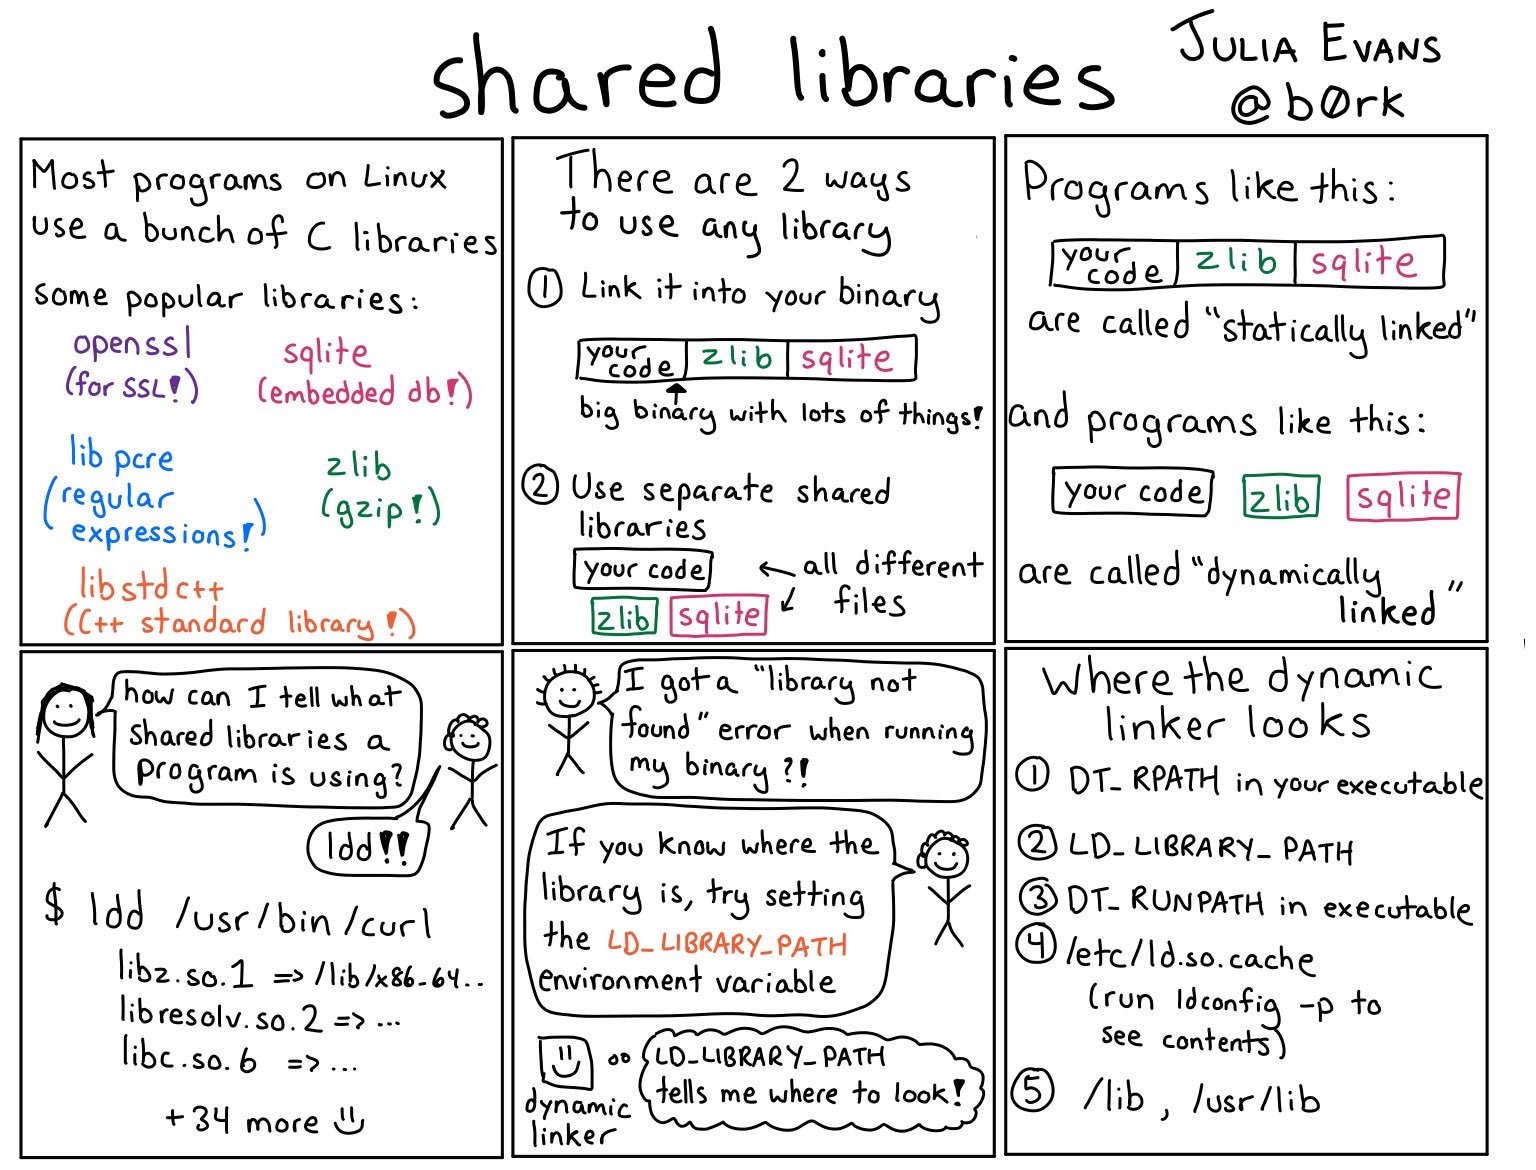 shared libraries
JULIA EVANS
@b0rk
Most programs on Linux
use a bunch of C libraries
some popular libraries:
openssl
(for SSL!)
sqlite
(embedded db!)
lib pcre
(regular
expressions!)
zlib
(gzip!)
libstdc++
(C++ standard library!)
There are 2 ways
to use any library
① Link it into your binary
your
code
zlib
sqlite
big binary with lots of things!
② Use separate shared
libraries
your code
zlib
sqlite
all different
files
Programs like this:
your
code
zlib
sqlite
are called "statically linked"
and programs like this:
your code
zlib
sqlite
are called "dynamically
linked"
how can I tell what
shared libraries a
program is using?
ldd!!
$ ldd /usr/bin/curl
libz.so.1 => /lib/x86-64..
libresolv.so.2 => ...
libc.so.6 => ...
+34 more
I got a "library not
found" error when running
my binary?!
If you know where the
library is, try setting
the LD_LIBRARY_PATH
environment variable
dynamic
linker
LD_LIBRARY_PATH
tells me where to look!
Where the dynamic
linker looks
① DT_RPATH in your executable
② LD_LIBRARY_PATH
③ DT_RUNPATH in executable
④ /etc/ld.so.cache
(run ldconfig -p to
see contents)
⑤ /lib, /usr/lib